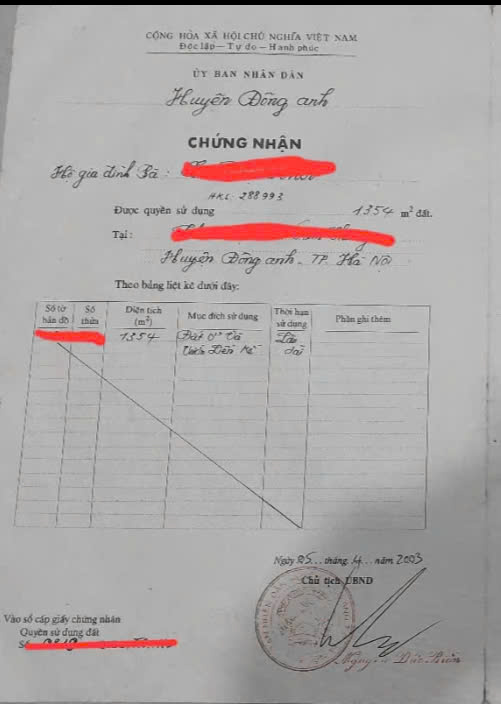 CỘNG HÒA XÃ HỘI CHỦ NGHĨA VIỆT NAM
Độc lập — Tự do — Hạnh phúc
ỦY BAN NHÂN DÂN
Huyện Đông anh
CHỨNG NHẬN
Hộ gia đình Bà :
HKL: 288993
Được quyền sử dụng 1354 m² đất.
Tại :
Huyện Đông anh - TP. Hà Nội
Theo bảng liệt kê dưới đây:
Số tờ bản đồ | Số thửa | Diện tích (m²) | Mục đích sử dụng | Thời hạn sử dụng | Phần ghi thêm
1354 | Đất ở và | Lâu
dài
Ngày 25... tháng. 4... năm 2003
Chủ tịch UBND
Vào sổ cấp giấy chứng nhận
Quyền sử dụng đất
Số
Nguyễn Đức